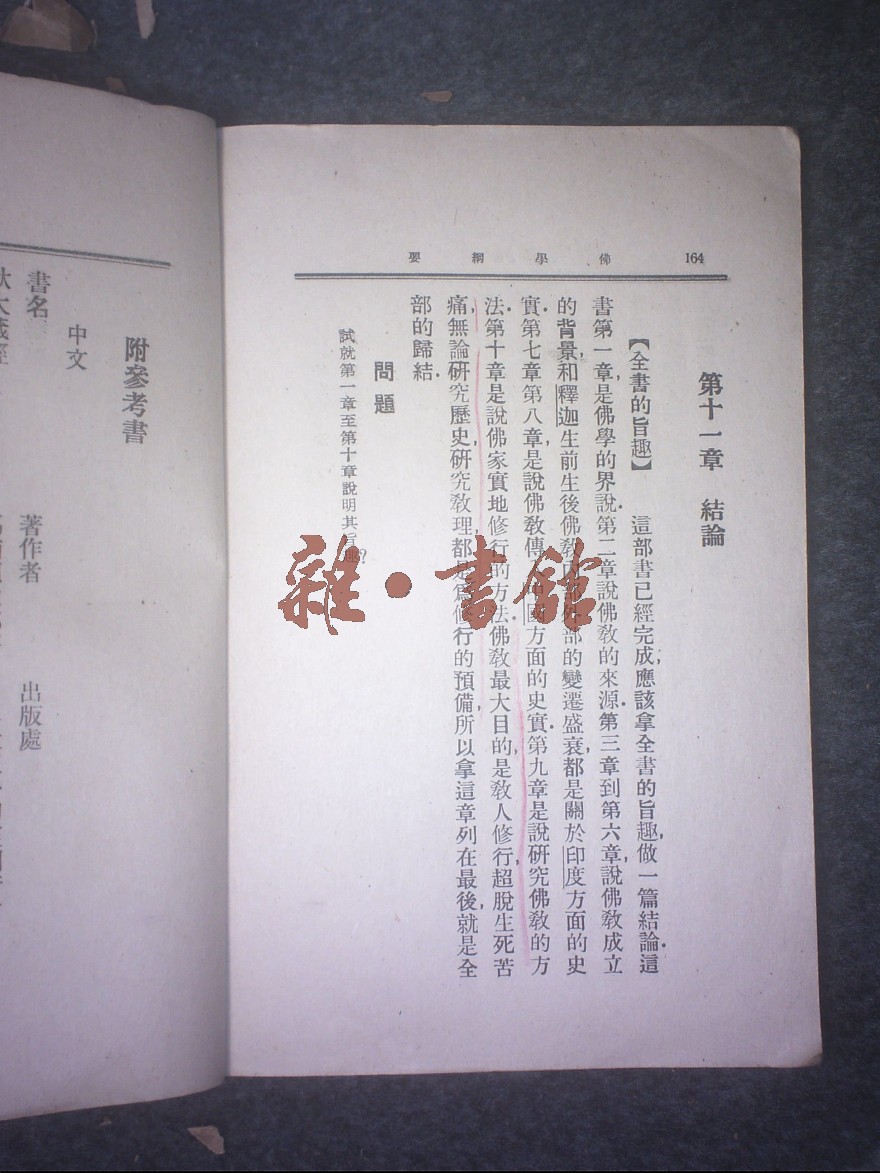 164
佛學綱要
第十一章 結論
【全書的旨趣】 這部書已經完成,應該拿全書的旨趣,做一篇結論.這
書第一章,是佛學的界說.第二章說佛敎的來源.第三章到第六章,說佛敎成立
的背景,和釋迦生前生後佛敎內部外部的變遷盛衰,都是關於印度方面的史
實.第七章第八章,是說佛敎傳入中國方面的史實.第九章是說研究佛敎的方
法.第十章是說佛家實地修行的方法.佛敎最大目的,是敎人修行,超脫生死苦
痛,無論研究歷史,研究敎理,都是爲修行的預備,所以拿這章列在最後,就是全
部的歸結.
問題
試就第一章至第十章說明其旨趣?
雜·書館
附參考書
中文
書名 著作者 出版處
大藏經